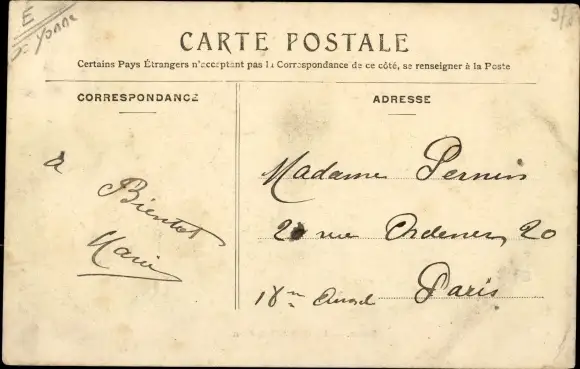 E
Yonne
CARTE POSTALE
Certains Pays Étrangers n'acceptant pas la Correspondance de ce côté, se renseigner à la Poste
CORRESPONDANCE
a
Bientot
Marie
ADRESSE
Madame Pernin
20 rue Ordener, 20
18m Arrond Paris